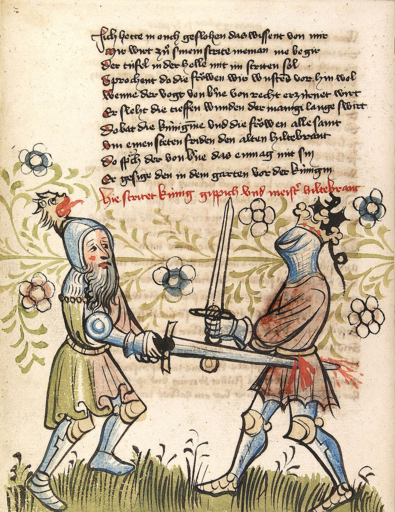 Ich hette in ouch geslohen das wissent von mir
Mir wirt zů sinem strite nieman me begir
Der tüfel in der helle mit im striten sol
Sprochent do die frŏwen wir wustens vor hin wol
Wenne der vogt von bn̄e von recht erzürnet wirt
Er sleht die tieffen wunden der manigi lange swirt
Do bat die künigine und die frŏwen alle samt
Um einen steten friden den alten hiltebrant
Do sp̄ch der von bn̄e das enmag nit sin
Er gesige den in dem garten vor der künigin
Hie stritet künig gippich und meist̄ hiltebrant